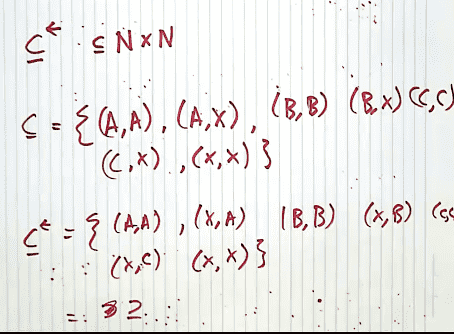 ⊆← ⊆ N × N
⊆ = {(A,A), (A,X), (B,B) (B,X) (C,C)
(C,X), (X,X)}
⊆← = {(A,A), (X,A) (B,B) (X,B) (C,C
(X,C) (X,X)}
= ⊇